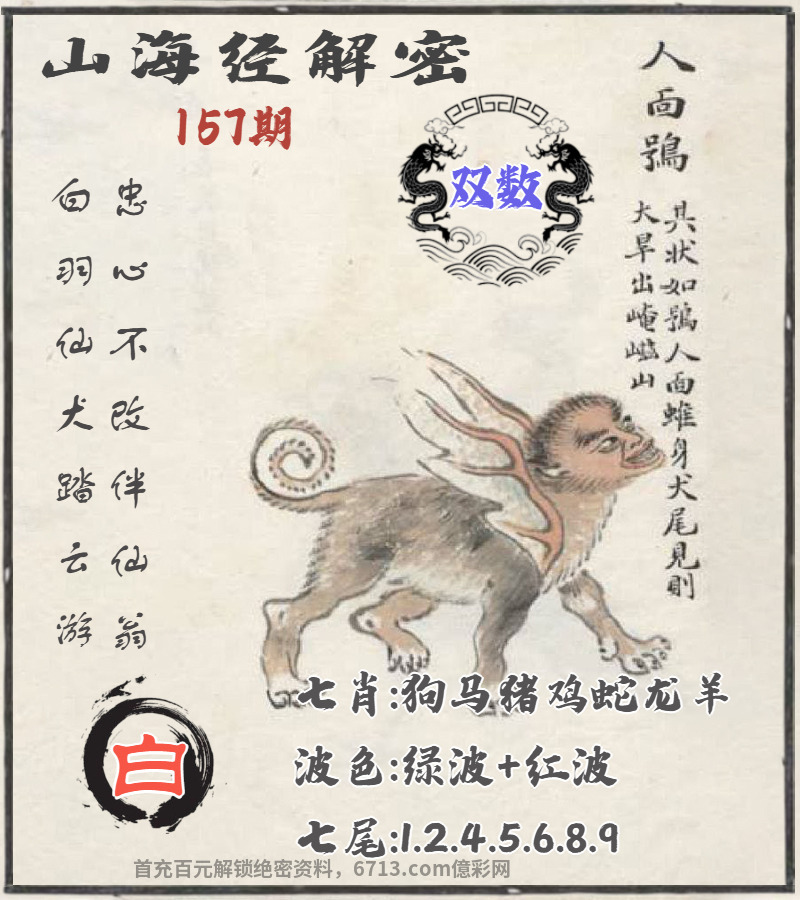 山海经解密
157期
人面鴞
其状如鴞人面蜼身犬尾見則
大旱出崦嵫山
双数
忠心不改伴仙翁
白羽仙犬踏云游
白
七肖:狗马猪鸡蛇龙羊
波色:绿波+红波
七尾:1.2.4.5.6.8.9
首充百元解锁绝密资料，6713.com億彩网